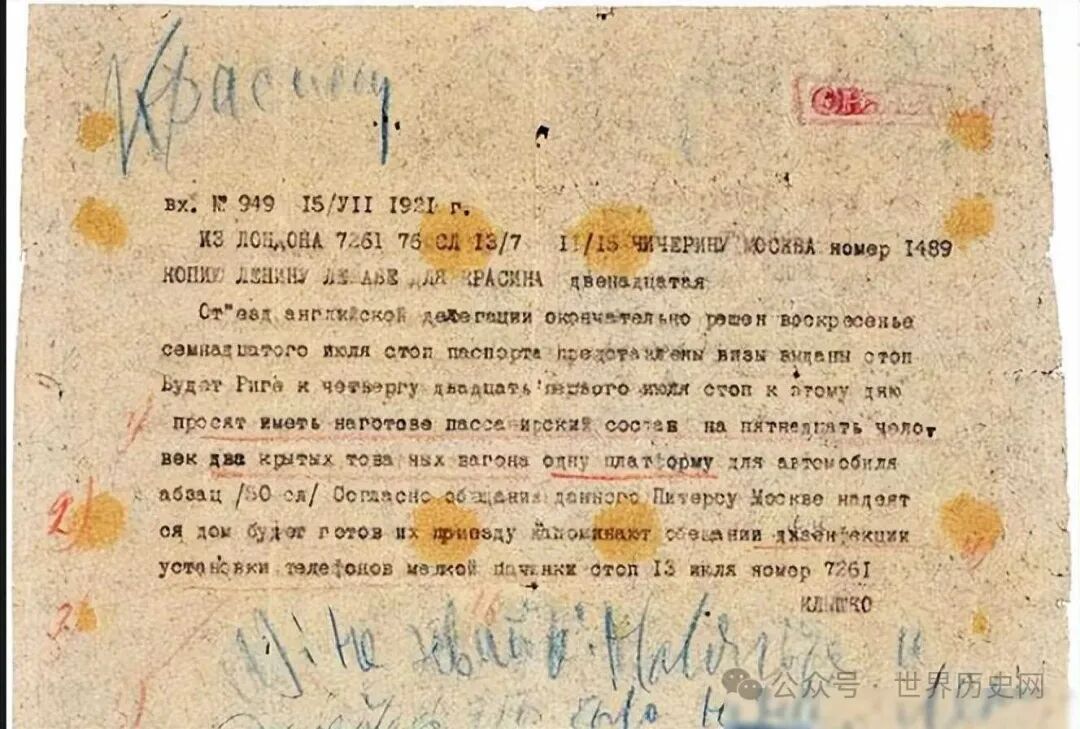 Красину
вх. № 949 15/VII 1921 г.
ИЗ ЛОНДОНА 7261 76 СЛ 13/7 11/15 ЧИЧЕРИНУ МОСКВА номер 1489
КОПИЮ ЛЕНИНУ ЛЕЖАВЕ ДЛЯ КРАСИНА двенадцатая
От"езд английской делегации окончательно решен воскресенье
семнадцатого июля стоп паспорта представлены визы выданы стоп
Будет Риге к четвергу двадцать первого июля стоп к этому дню
просят иметь наготове пассажирский состав на пятнадцать чело
век два крытых товарных вагона одну платформу для автомобиля
абзац /50 сл/ Согласно обещания данного Питерсу Москве надеят
ся дом будет готов их приезду напоминают обещании дизенфекции
установки телефонов мелкой починки стоп 13 июля номер 7261
КЛЫШКО
2/
3/
公众号 世界历史网